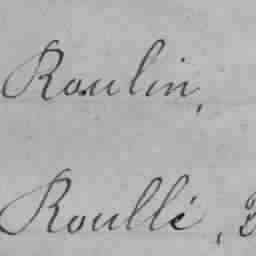 Raulin,
Roullé,